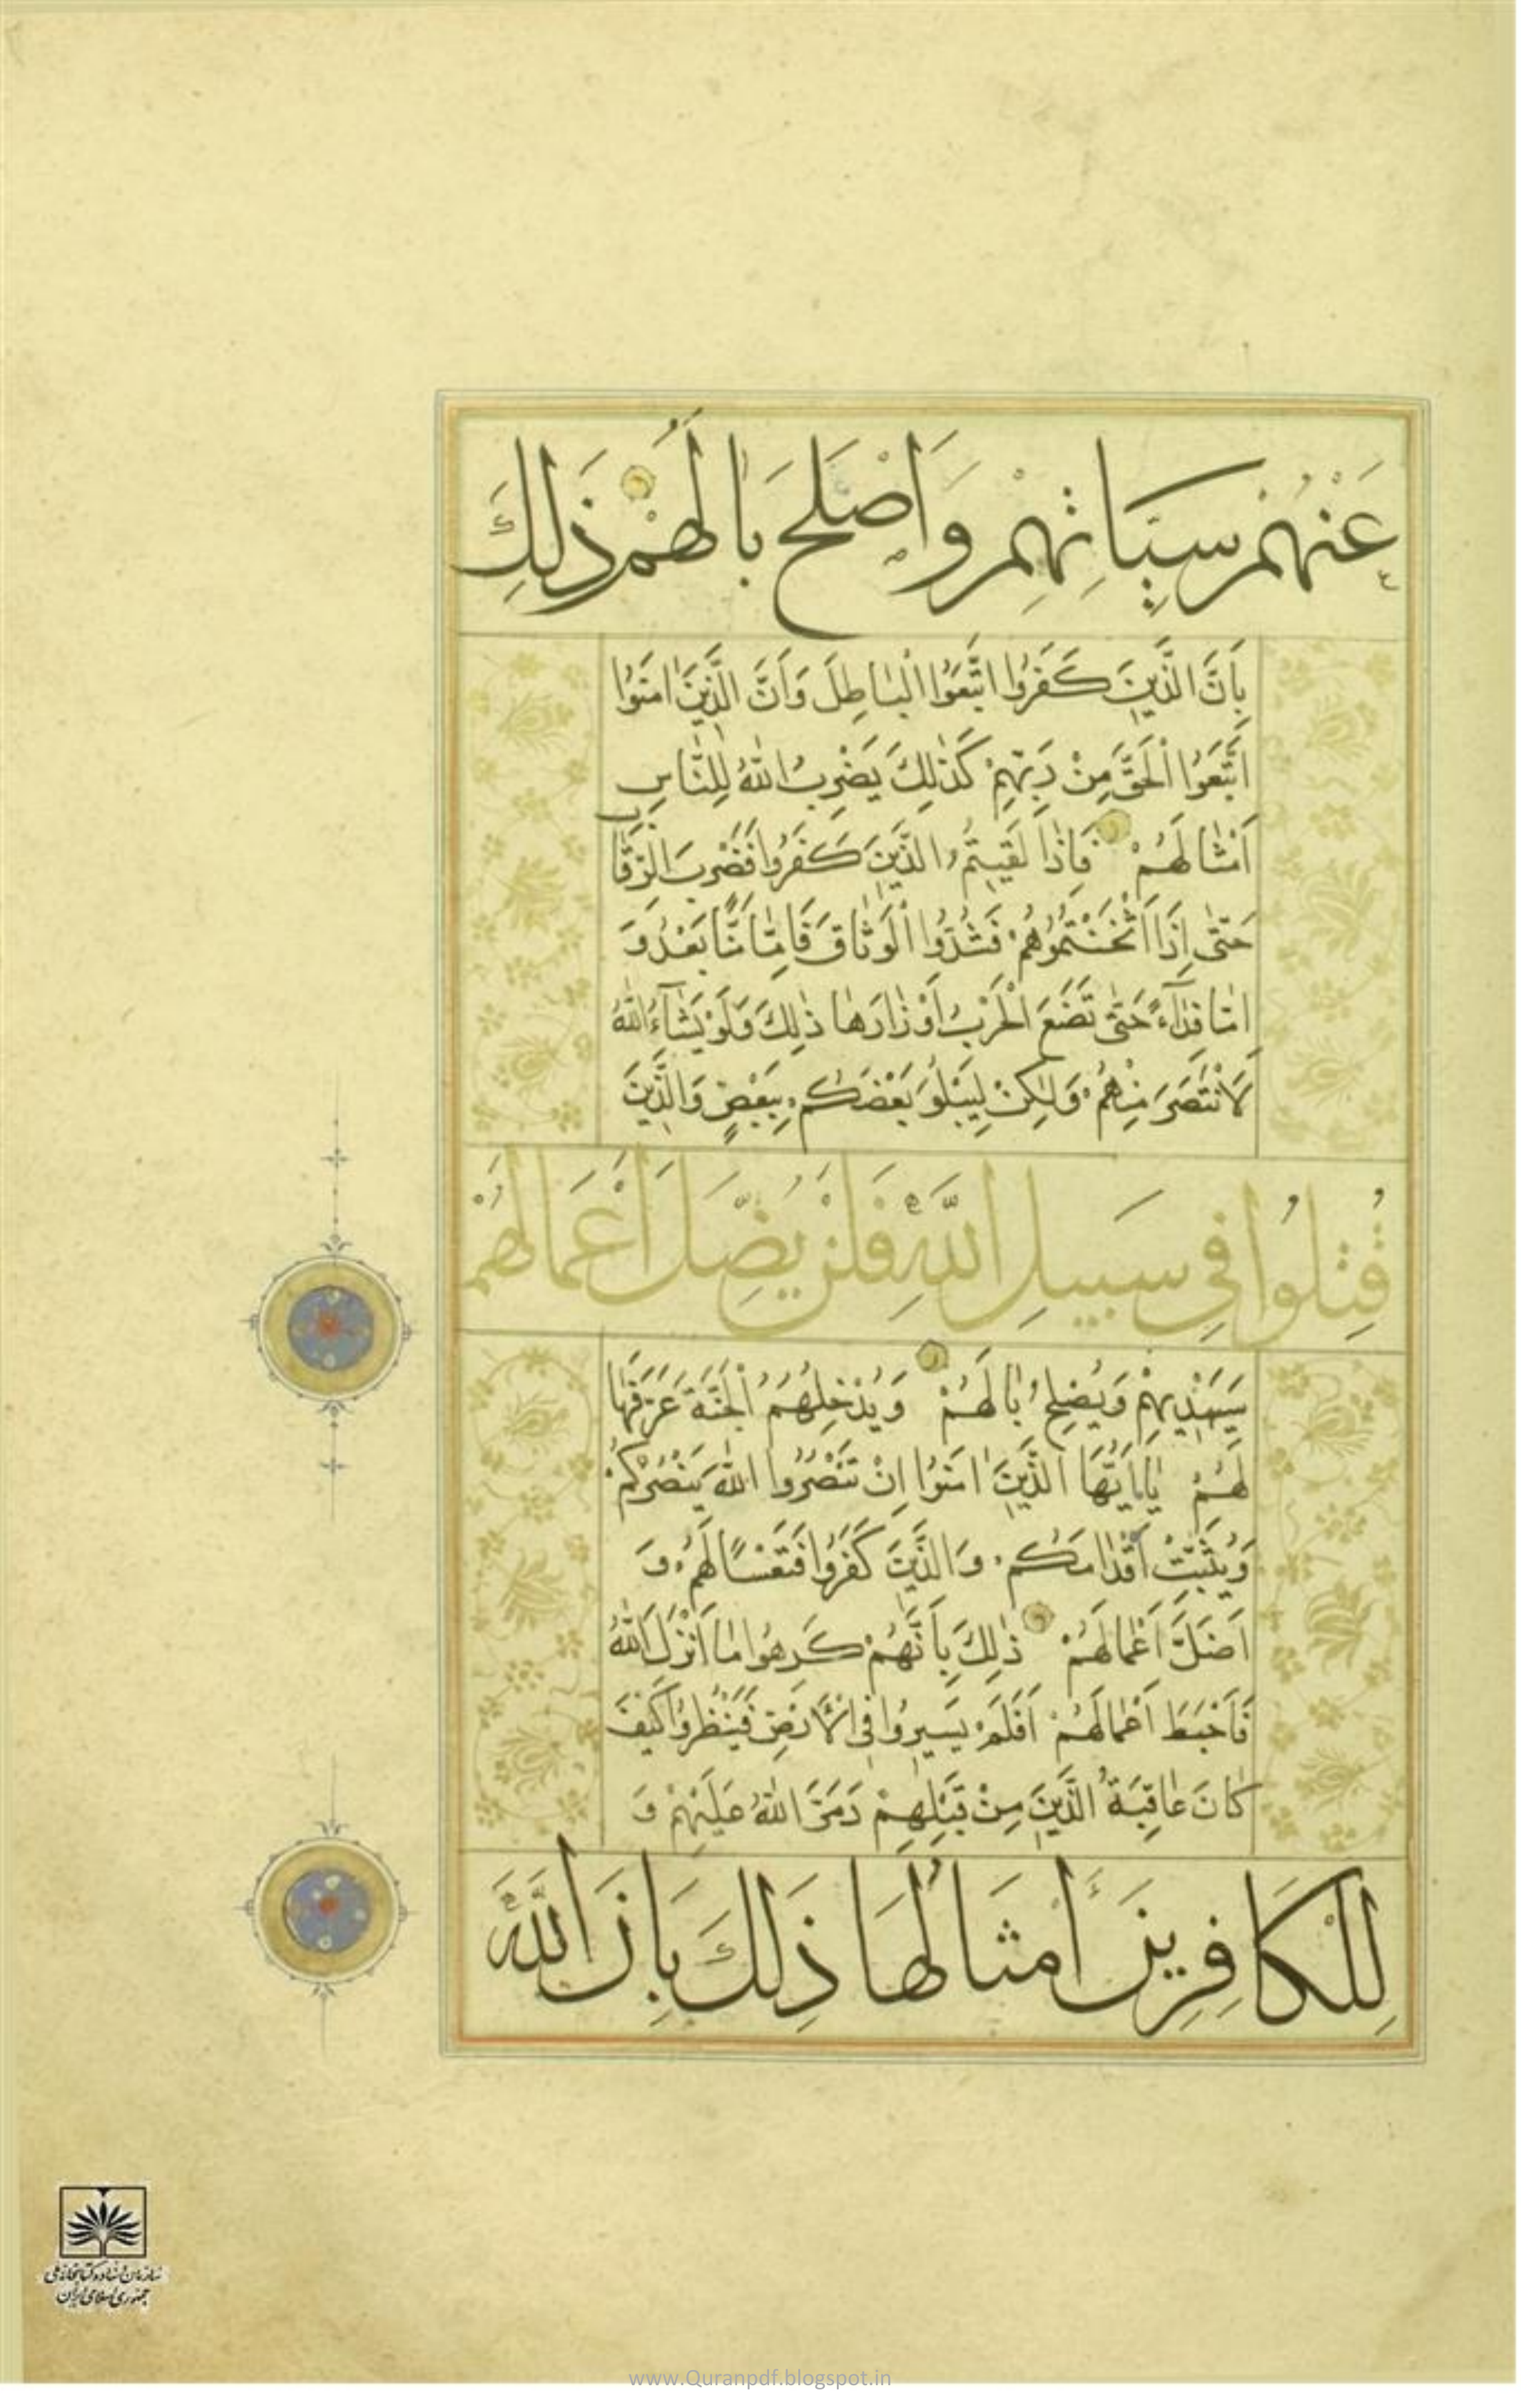 عَنْهُمْ سَيِّاٰتِهِمْ وَاَصْلَحَ بٰالَهُمْ ذٰلِكَ
بِاَنَّ الَّذِينَ كَفَرُوا اتَّبَعُوا الْبٰاطِلَ وَاَنَّ الَّذِينَ اٰمَنُوا
اتَّبَعُوا الْحَقَّ مِنْ رَبِّهِمْ كَذٰلِكَ يَضْرِبُ اللّٰهُ لِلنّٰاسِ
اَمْثٰالَهُمْ فَاِذٰا لَقِيتُمُ الَّذِينَ كَفَرُوا فَضَرْبَ الرِّقٰابِ
حَتّٰى اِذٰا اَثْخَنْتُمُوهُمْ فَشُدُّوا الْوَثٰاقَ فَاِمّٰا مَنًّا بَعْدُ وَ
اِمّٰا فِدٰآءً حَتّٰى تَضَعَ الْحَرْبُ اَوْزٰارَهٰا ذٰلِكَ وَلَوْ يَشٰآءُ اللّٰهُ
لَانْتَصَرَ مِنْهُمْ وَلٰكِنْ لِيَبْلُوَ بَعْضَكُمْ بِبَعْضٍ وَالَّذِينَ
قُتِلُوا فِي سَبِيلِ اللّٰهِ فَلَنْ يُضِلَّ اَعْمٰالَهُمْ
سَيَهْدِيهِمْ وَيُصْلِحُ بٰالَهُمْ وَيُدْخِلُهُمُ الْجَنَّةَ عَرَّفَهٰا
لَهُمْ يٰااَيُّهَا الَّذِينَ اٰمَنُوا اِنْ تَنْصُرُوا اللّٰهَ يَنْصُرْكُمْ
وَيُثَبِّتْ اَقْدٰامَكُمْ وَالَّذِينَ كَفَرُوا فَتَعْسًا لَهُمْ وَ
اَضَلَّ اَعْمٰالَهُمْ ذٰلِكَ بِاَنَّهُمْ كَرِهُوا مٰا اَنْزَلَ اللّٰهُ
فَاَحْبَطَ اَعْمٰالَهُمْ اَفَلَمْ يَسِيرُوا فِي الْاَرْضِ فَيَنْظُرُوا كَيْفَ
كٰانَ عٰاقِبَةُ الَّذِينَ مِنْ قَبْلِهِمْ دَمَّرَ اللّٰهُ عَلَيْهِمْ وَ
لِلْكَافِرِينَ اَمْثَالُهَا ذٰلِكَ بِاَنَّ اللّٰهَ
سازمان اسناد و کتابخانه ملی
جمهوری اسلامی ایران
www.Quranpdf.blogspot.in